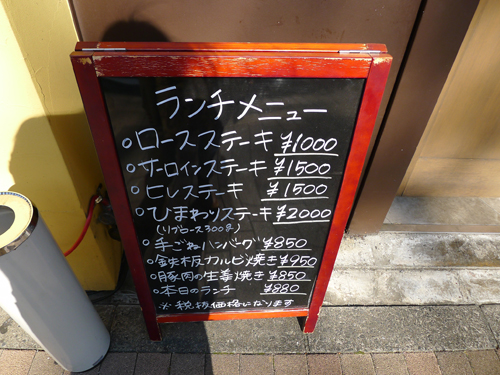 ランチメニュー
○ロースステーキ ¥1000
○サーロインステーキ ¥1500
○ヒレステーキ ¥1500
○ひまわりステーキ ¥2000
(リブロース300g)
○手ごねハンバーグ ¥850
○鉄板カルビ焼き ¥950
○豚肉の生姜焼き ¥850
○本日のランチ ¥880
※税抜価格になります